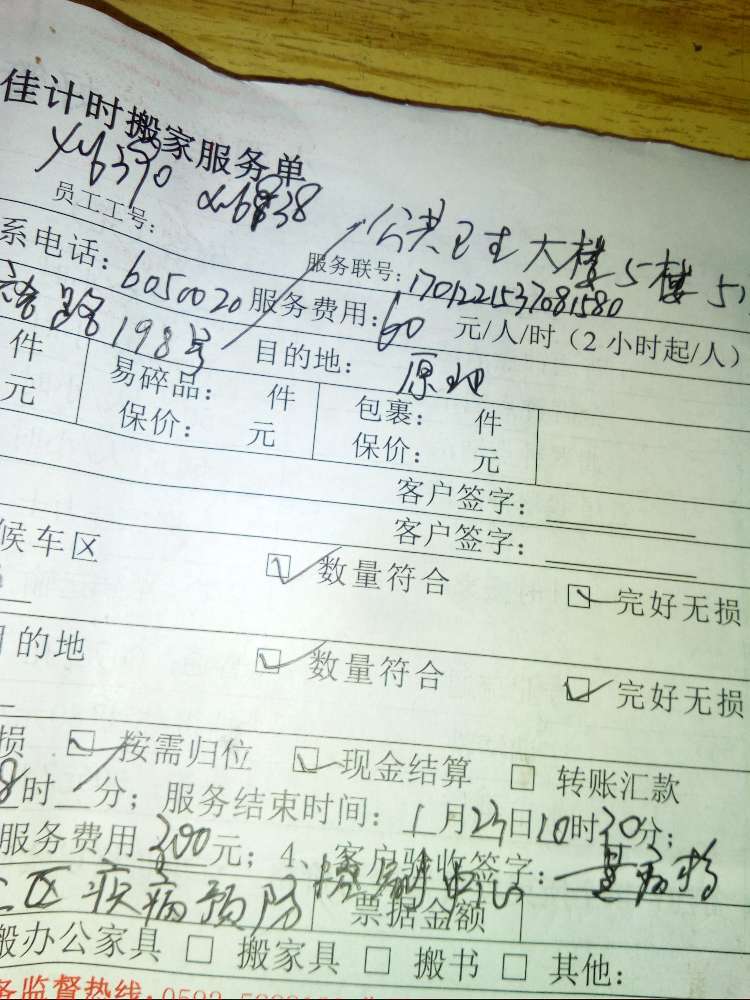 佳计时搬家服务单
xy6390 xy6838
员工工号: 公共卫生大楼5楼
系电话: 6050020 服务联号: 1701221537081580
服务费用: 60 元/人/时（2小时起/人）
路198号 目的地: 原地
件 易碎品: 件 包裹: 件
元 保价: 元 保价: 元
客户签字:
客户签字:
候车区
数量符合 完好无损
目的地
数量符合 完好无损
损 按需归位 现金结算 转账汇款
8时 分; 服务结束时间: 1月23日10时30分;
服务费用300元; 4、客户验收签字:
区疾病预防控制中心 票据金额
般办公家具 搬家具 搬书 其他:
务监督热线: 0592